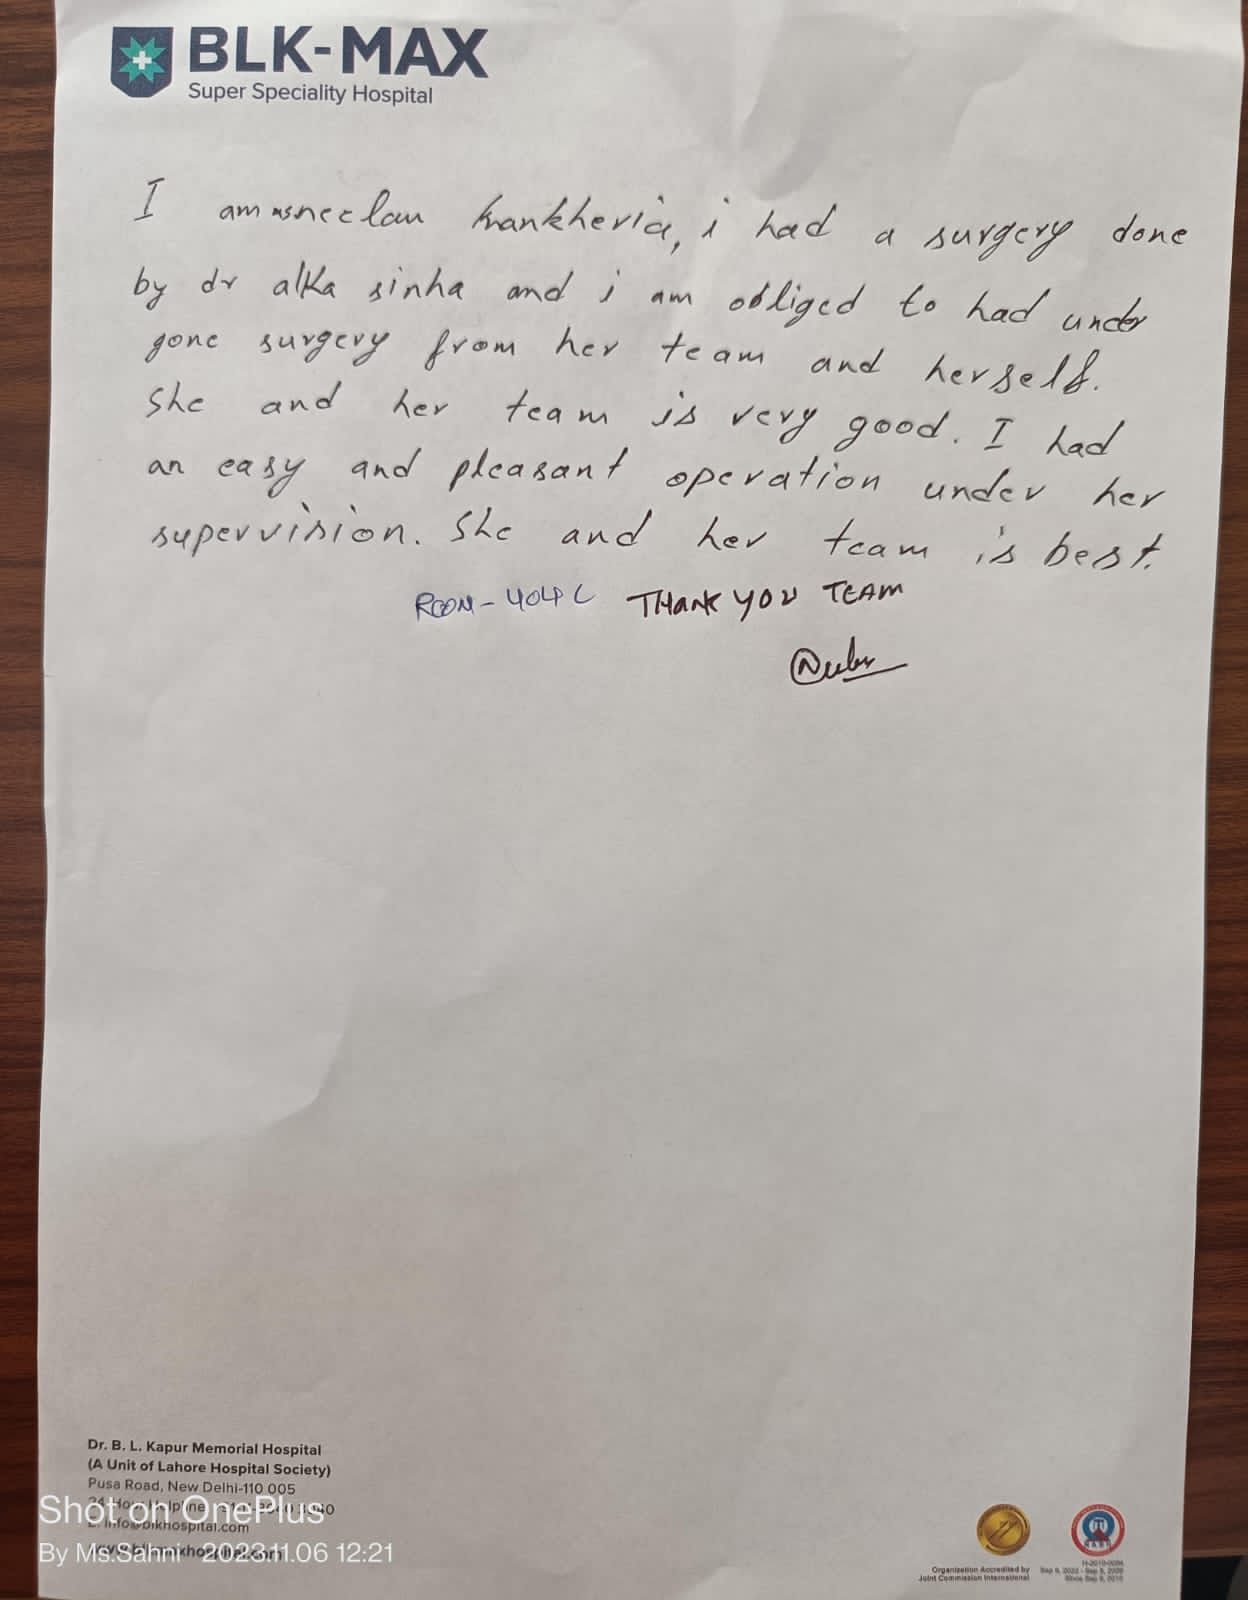 BLK-MAX
Super Speciality Hospital
I am surgery done
by dr alka sinha and i am obliged to had under
gone surgery from her team and herself.
She and her team is very good. I had
an easy and pleasant operation under her
supervision. She and her team is best.
ROOM-404 C THANK YOU TEAM
Dr. B. L. Kapur Memorial Hospital
(A Unit of Lahore Hospital Society)
Pusa Road, New Delhi-110 005
Shot on OnePlus
info@blkhospital.com
By Ms.Sahni 2023.11.06 12:21
Organization Accredited by
Joint Commission International